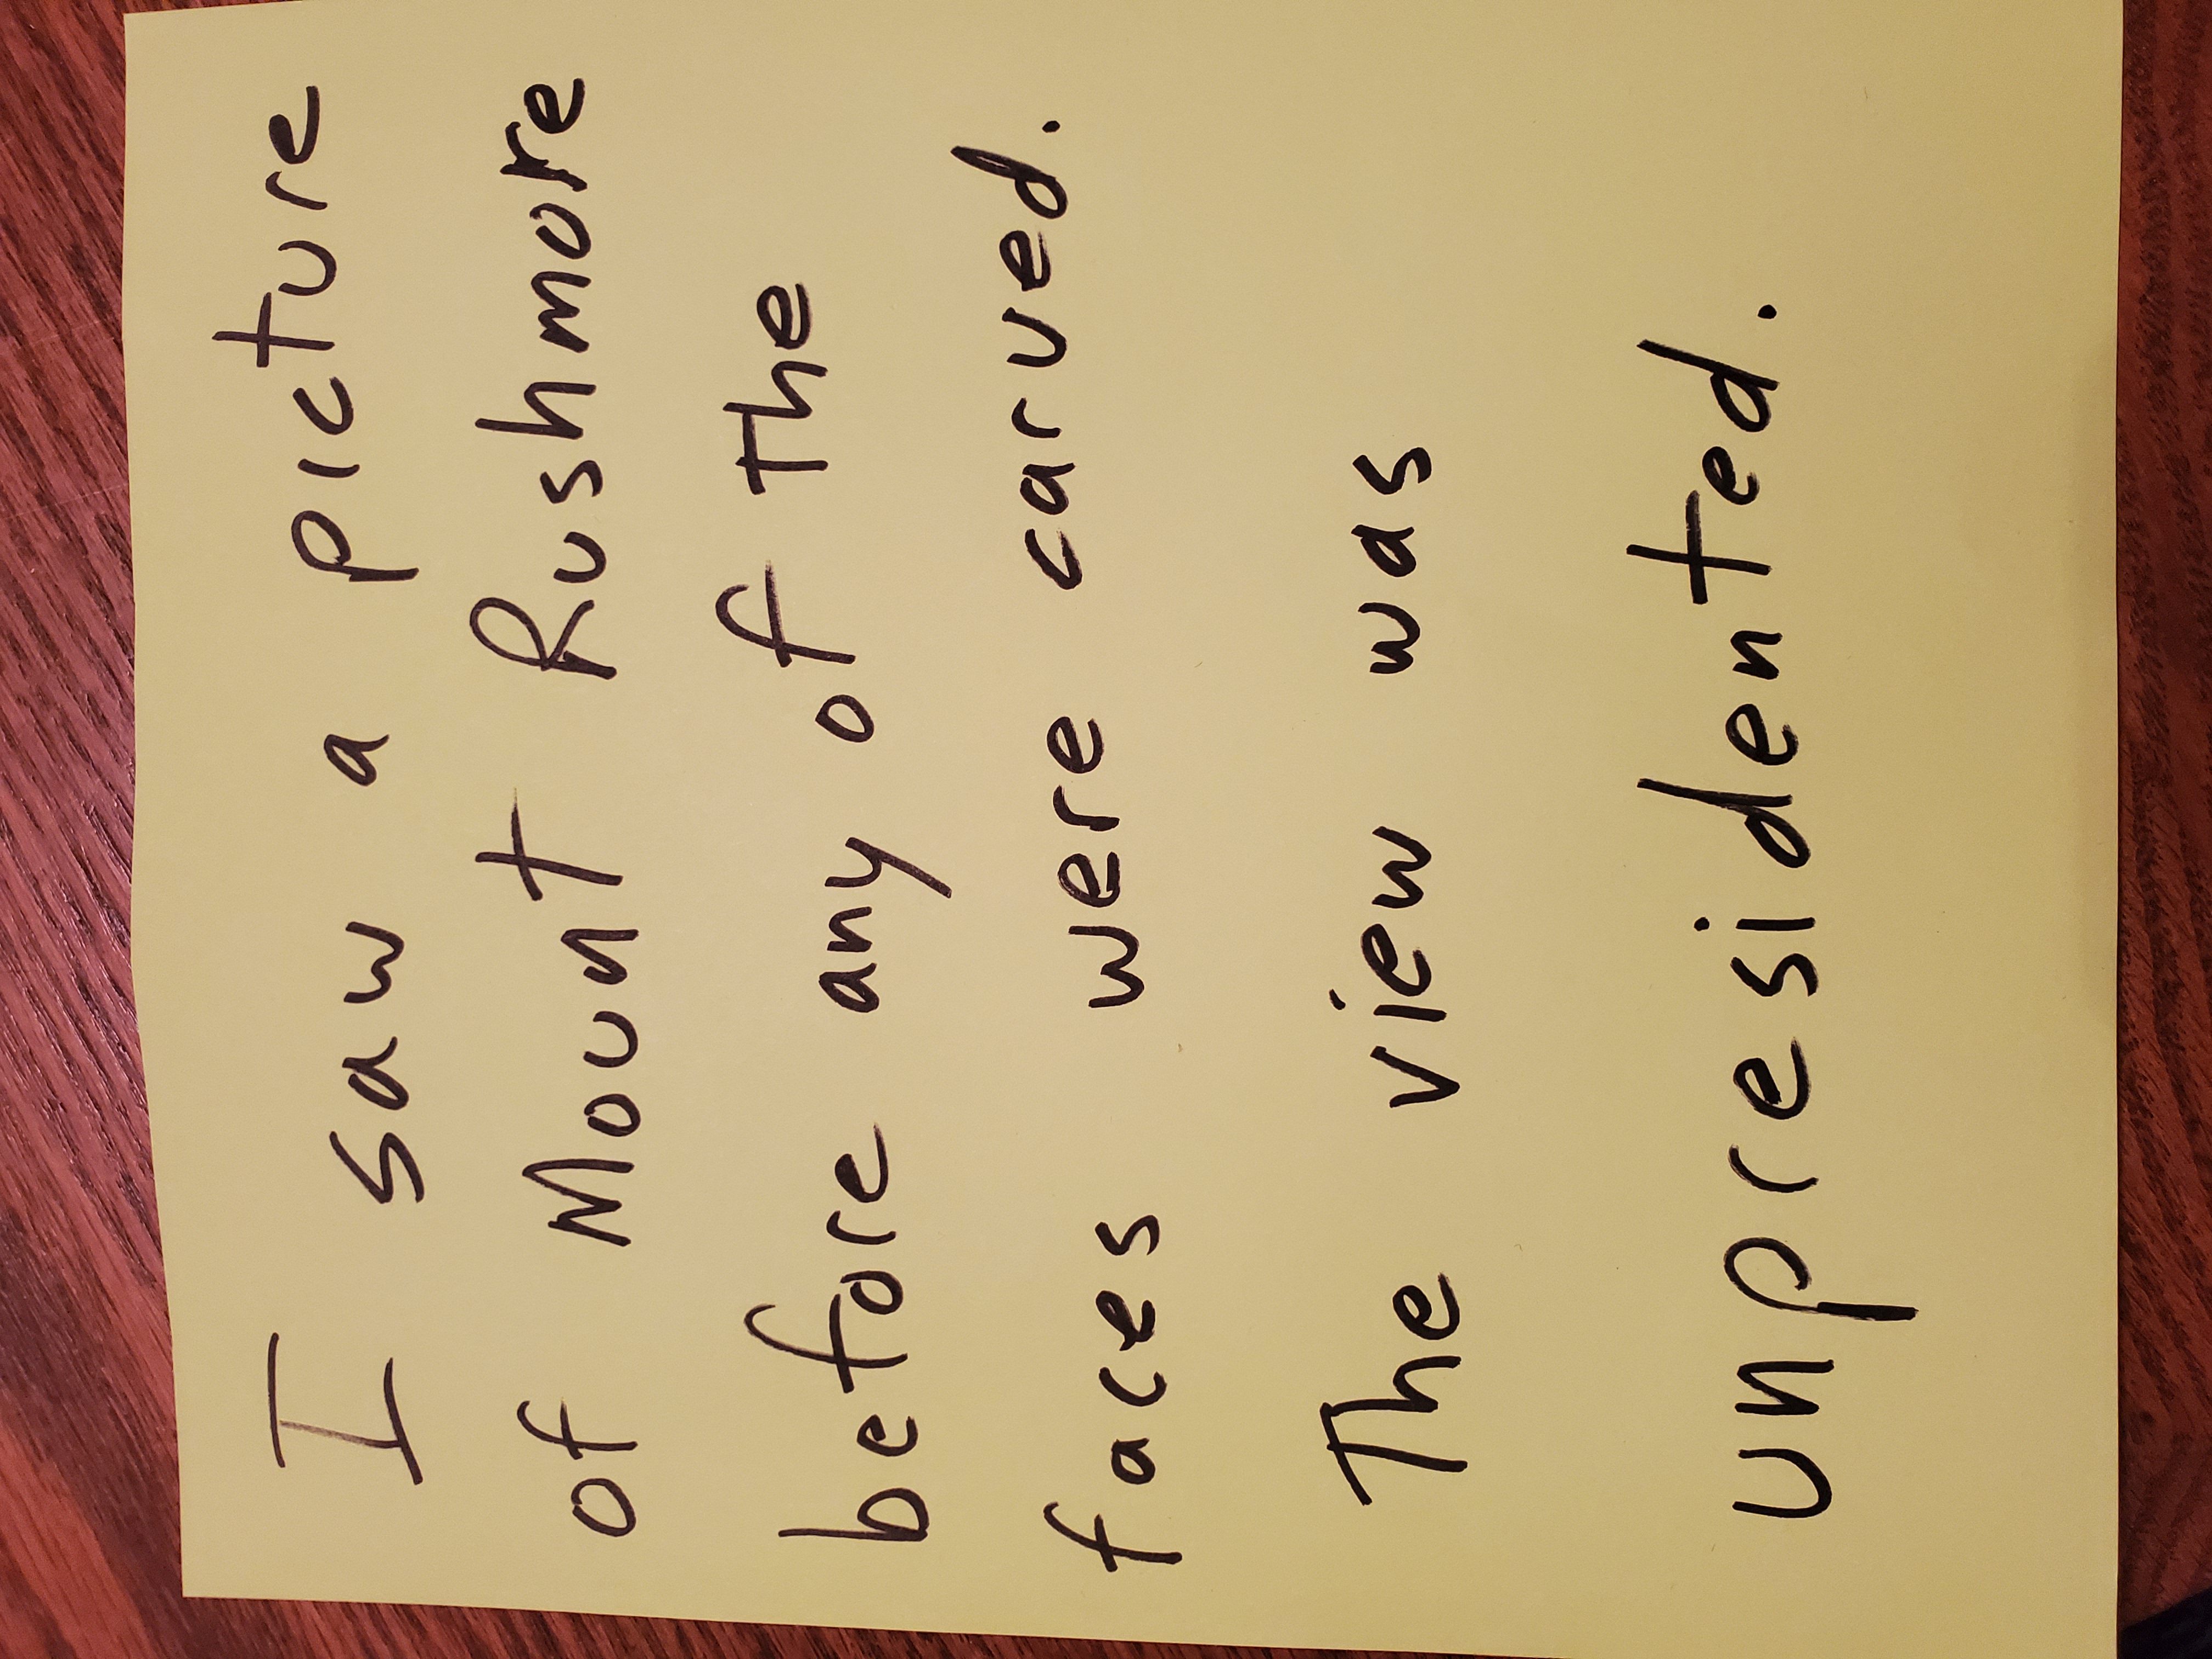 I saw a picture
of Mount Rushmore
before any of the
faces were carved.
The view was
unpresidented.